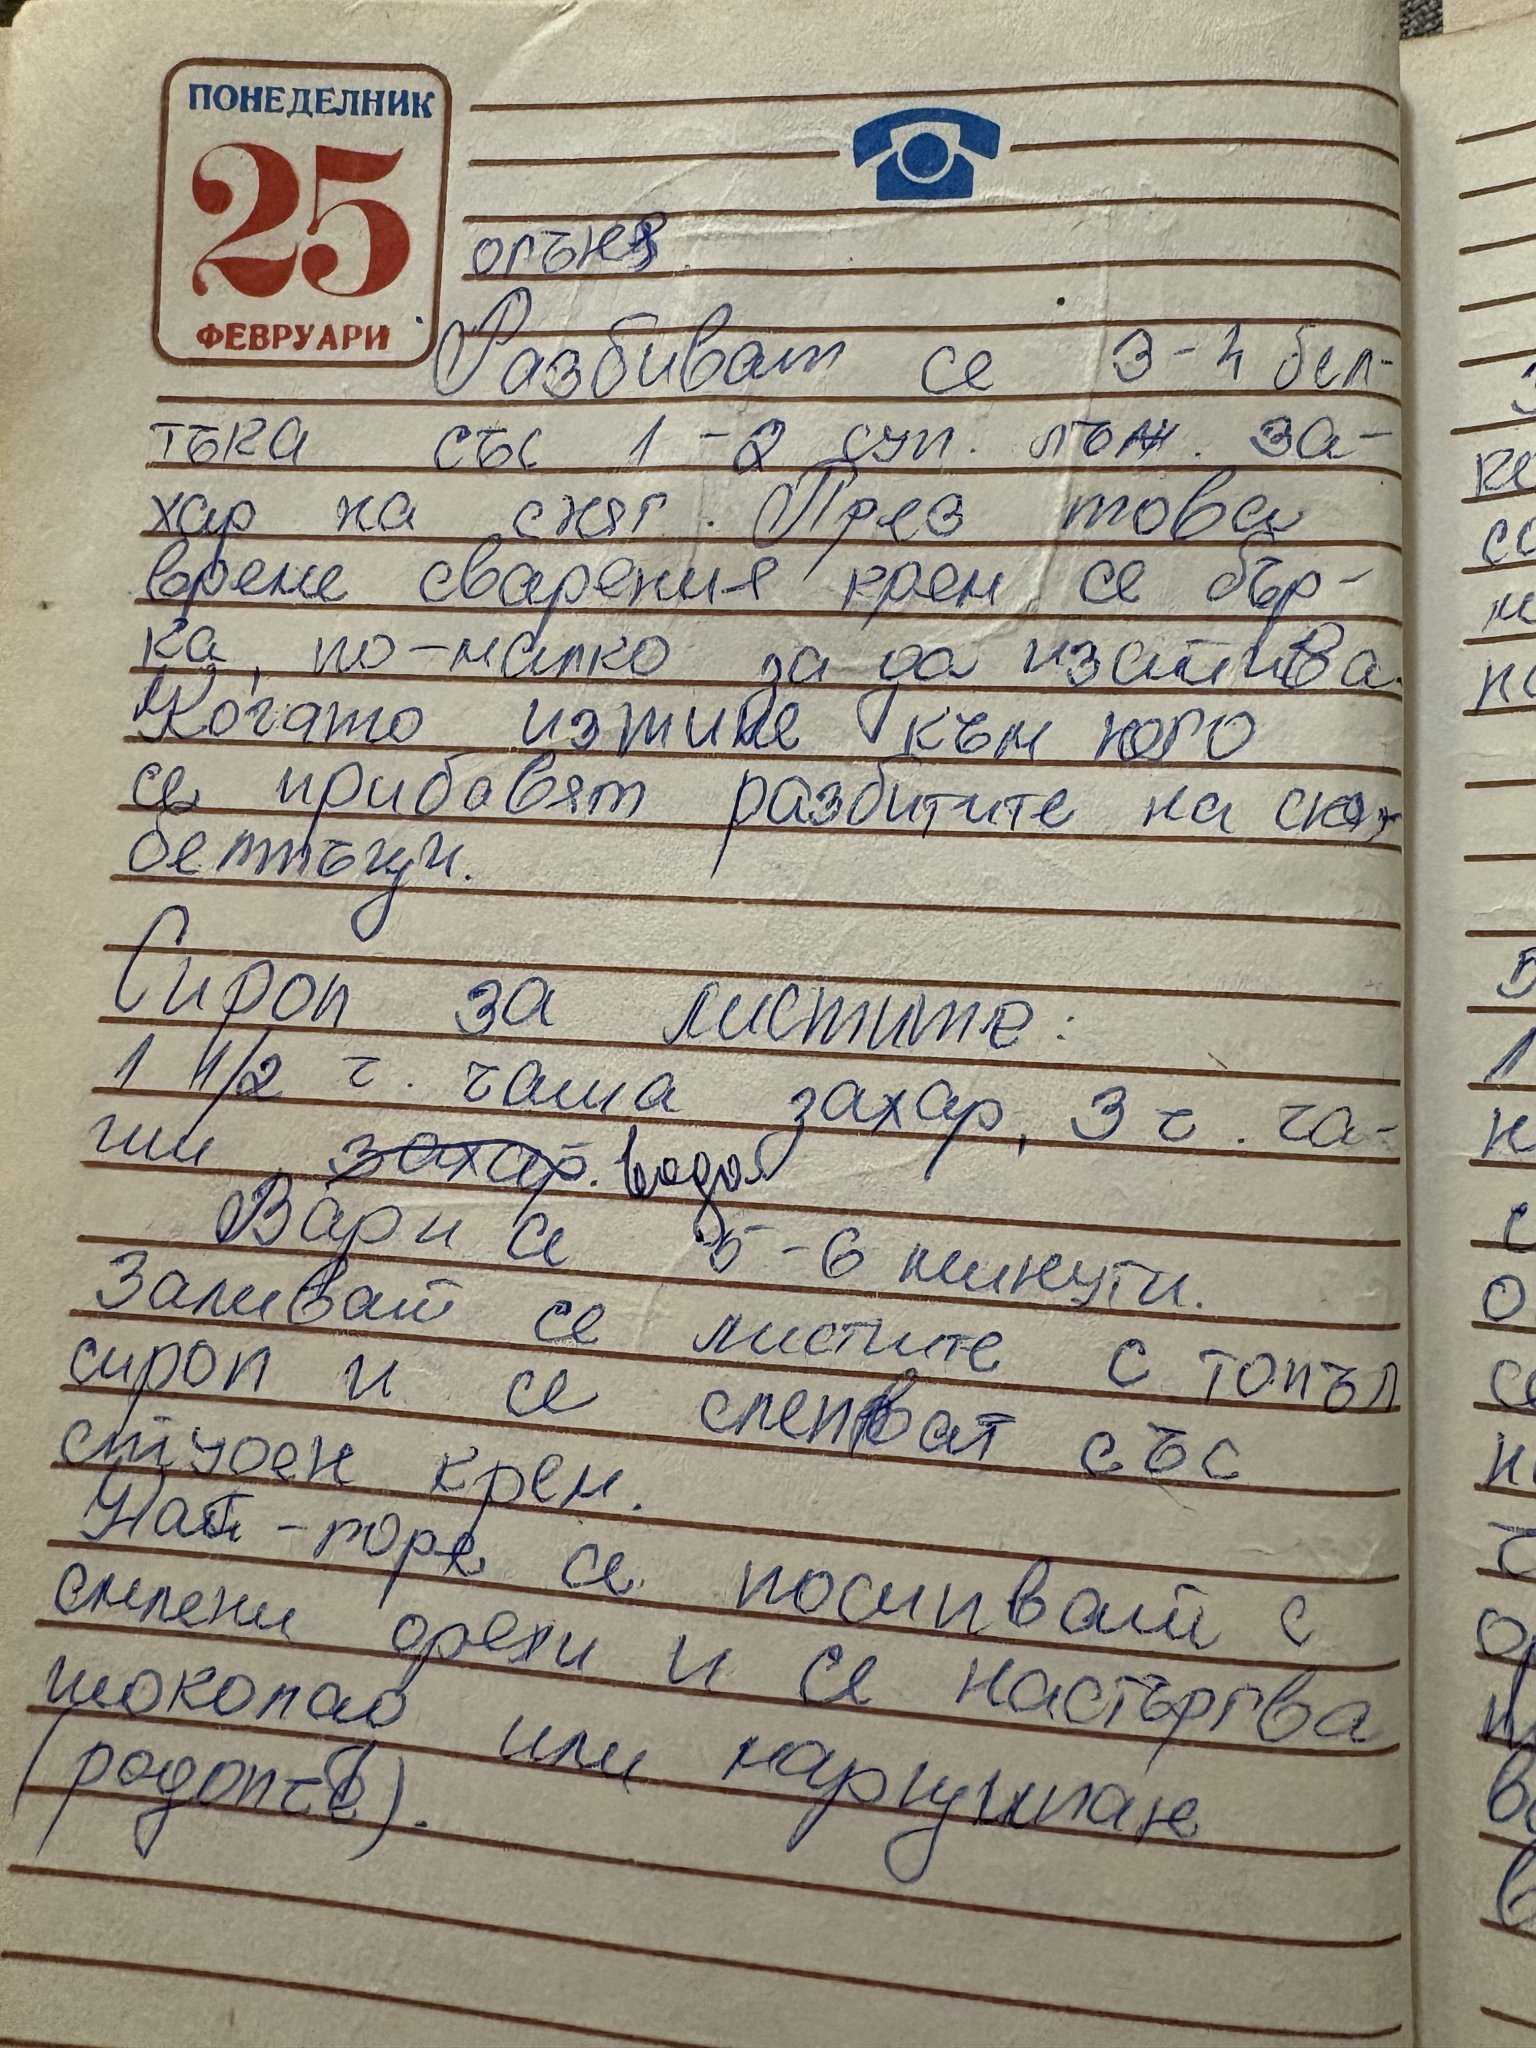 ПОНЕДЕЛНИК
25
ФЕВРУАРИ
огъня
Разбиват се 3-4 бел-
тъка със 1-2 суп. лъж. за-
хар на сняг. През това
време сварения крем се бър-
ка, по-малко за да изстива.
Когато изтине към него
се прибавят разбитите на сняг
белтъци.
Сироп за листите:
1 1/2 ч. чаша захар, 3 ч. ча-
ши захар. вода
Вари се 5-6 минути.
Заливат се листите с топъл
сироп и се слепват със
студен крем.
Най-горе се посипват с
смлени орехи и се настъргва
шоколад или маргушлан
(родопчĕ).